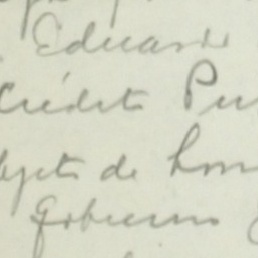 Eduardo
Crédito Pu
bjeto de hon
Gobierno